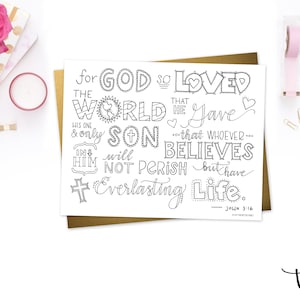 for GOD so LOVED
THE WORLD THAT HE Gave
HIS ONE & only SON that WHOEVER
IN HIM BELIEVES
will NOT PERISH but have
Everlasting Life.
JOHN 3:16